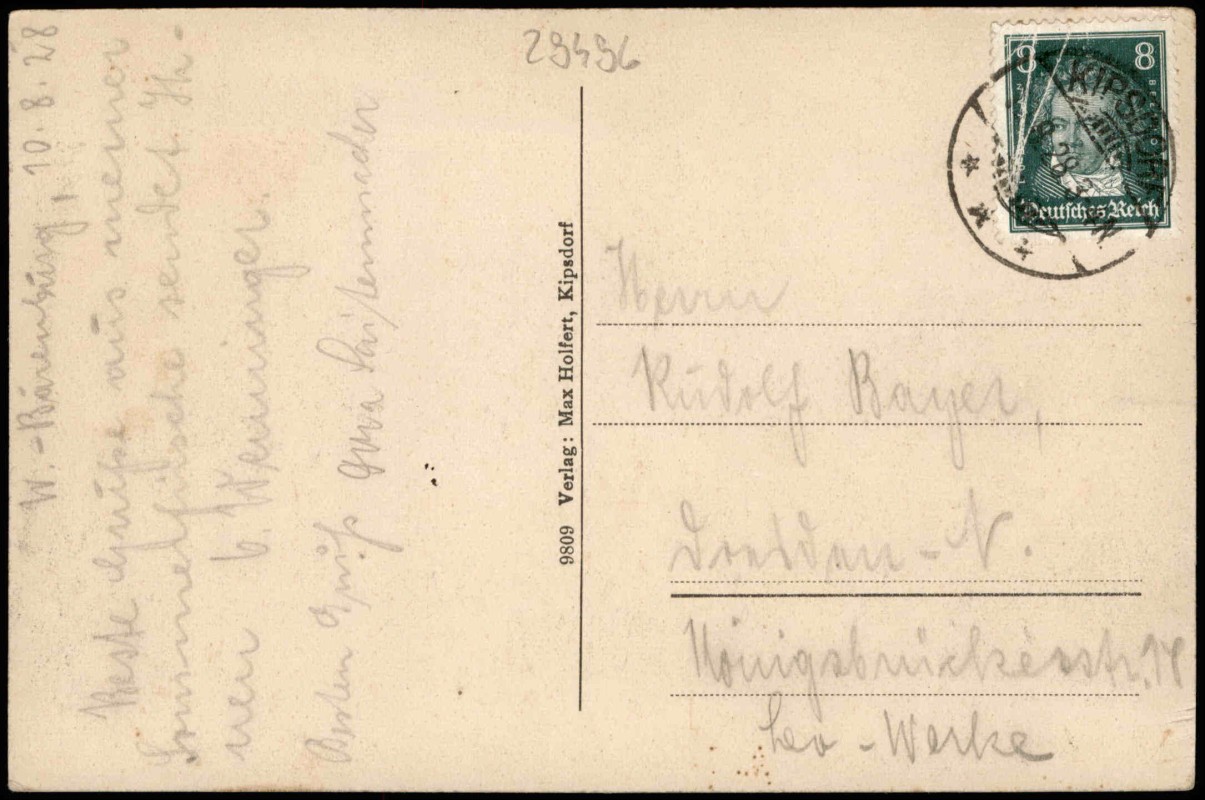 29496
W.-Bärenburg, 10.8.28
Beste Grüße aus meiner
Sommerfrische sendet Ih-
nen
Besten Gruß
9809 Verlag: Max Holfert, Kipsdorf
8 8
Deutsches Reich
KIPSDORF
Herrn
Rudolf Bayer,
Dresden-N.
Königsbrückerstr.
Leo-Werke